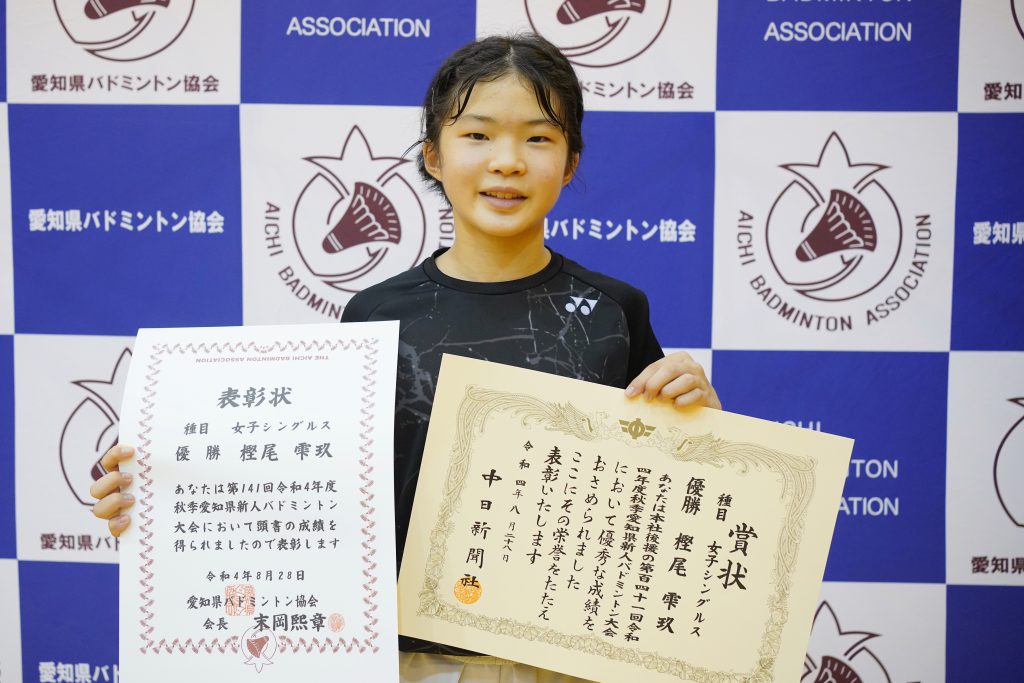 ASSOCIATION
BADMINTON
ASSOCIATION
愛知県バドミントン協会
愛知県バドミントン協会
愛知
愛知県バドミントン協会
AICHI BADMINTON ASSOCIATION
バドミントン協会
AICHI BADMINTON ASSOCIATION
愛知県
愛知県バド
愛知県
愛知県バド
THE AICHI BADMINTON ASSOCIATION
表彰状
種目 女子シングルス
優勝 樫尾 雫玖
あなたは第141回令和4年度
秋季愛知県新人バドミントン
大会において頭書の成績を
得られましたので表彰します
令和4年8月28日
愛知県バドミントン協会
会長 末岡熙章
賞状
種目 女子シングルス
優勝 樫尾 雫玖
あなたは本社後援の第百四十一回令和
四年度秋季愛知県新人バドミントン大会
において優秀な成績を
おさめられました
ここにその栄誉をたたえ
表彰いたします
令和四年八月二十八日
中日新聞社